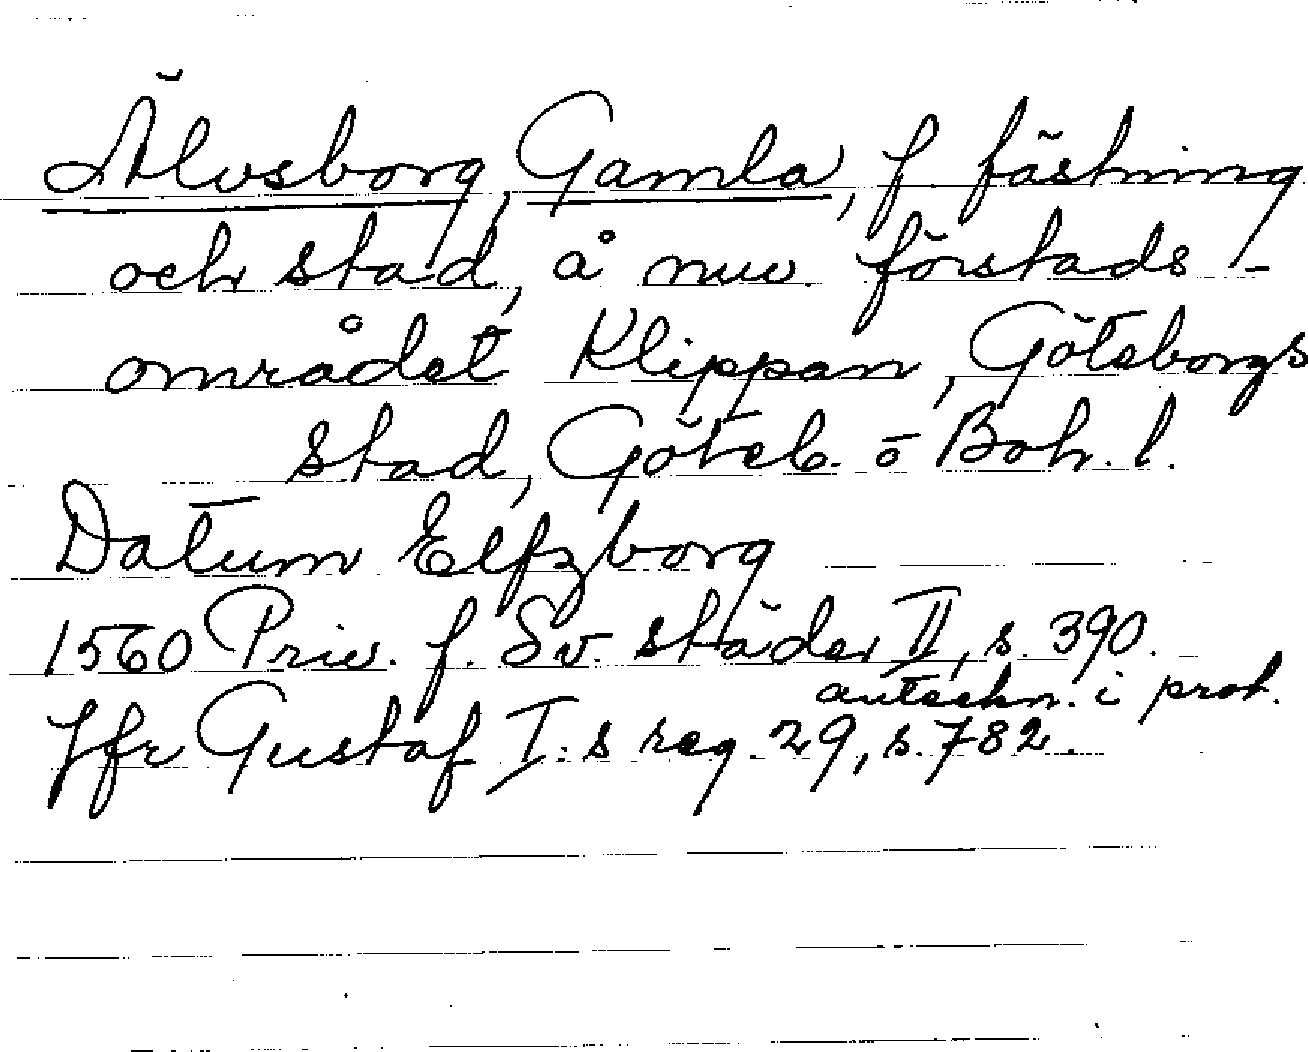 Älvsborg, Gamla, f fästning
och stad, å nuv. förstads-
området Klippan, Göteborgs
stad, Göteb. o Boh. l.
Datum Elfzborg
1560 Priv. f. Sv. städer II, s. 390.
anteckn. i prot.
Jfr Gustaf I:s reg. 29, s. 782.